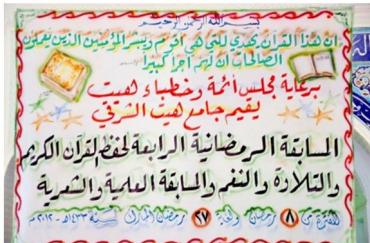 بسم الله الرحمن الرحيم
ان هذا القرآن يهدي للتي هي أقوم ويبشر المؤمنين الذين يعملون
الصالحات ان لهم اجرا كبيرا
برعاية مجلس أئمة وخطباء هيت
يقيم جامع هيت الشرقي
المسابقة الرمضانية الرابعة لحفظ القرآن الكريم
والتلاوة والنغم والمسابقة العلمية والشعرية
للفترة من ٨ رمضان ولغاية ٢٧ رمضان المبارك لسنة ١٤٣٣هـ - ٢٠١٢م